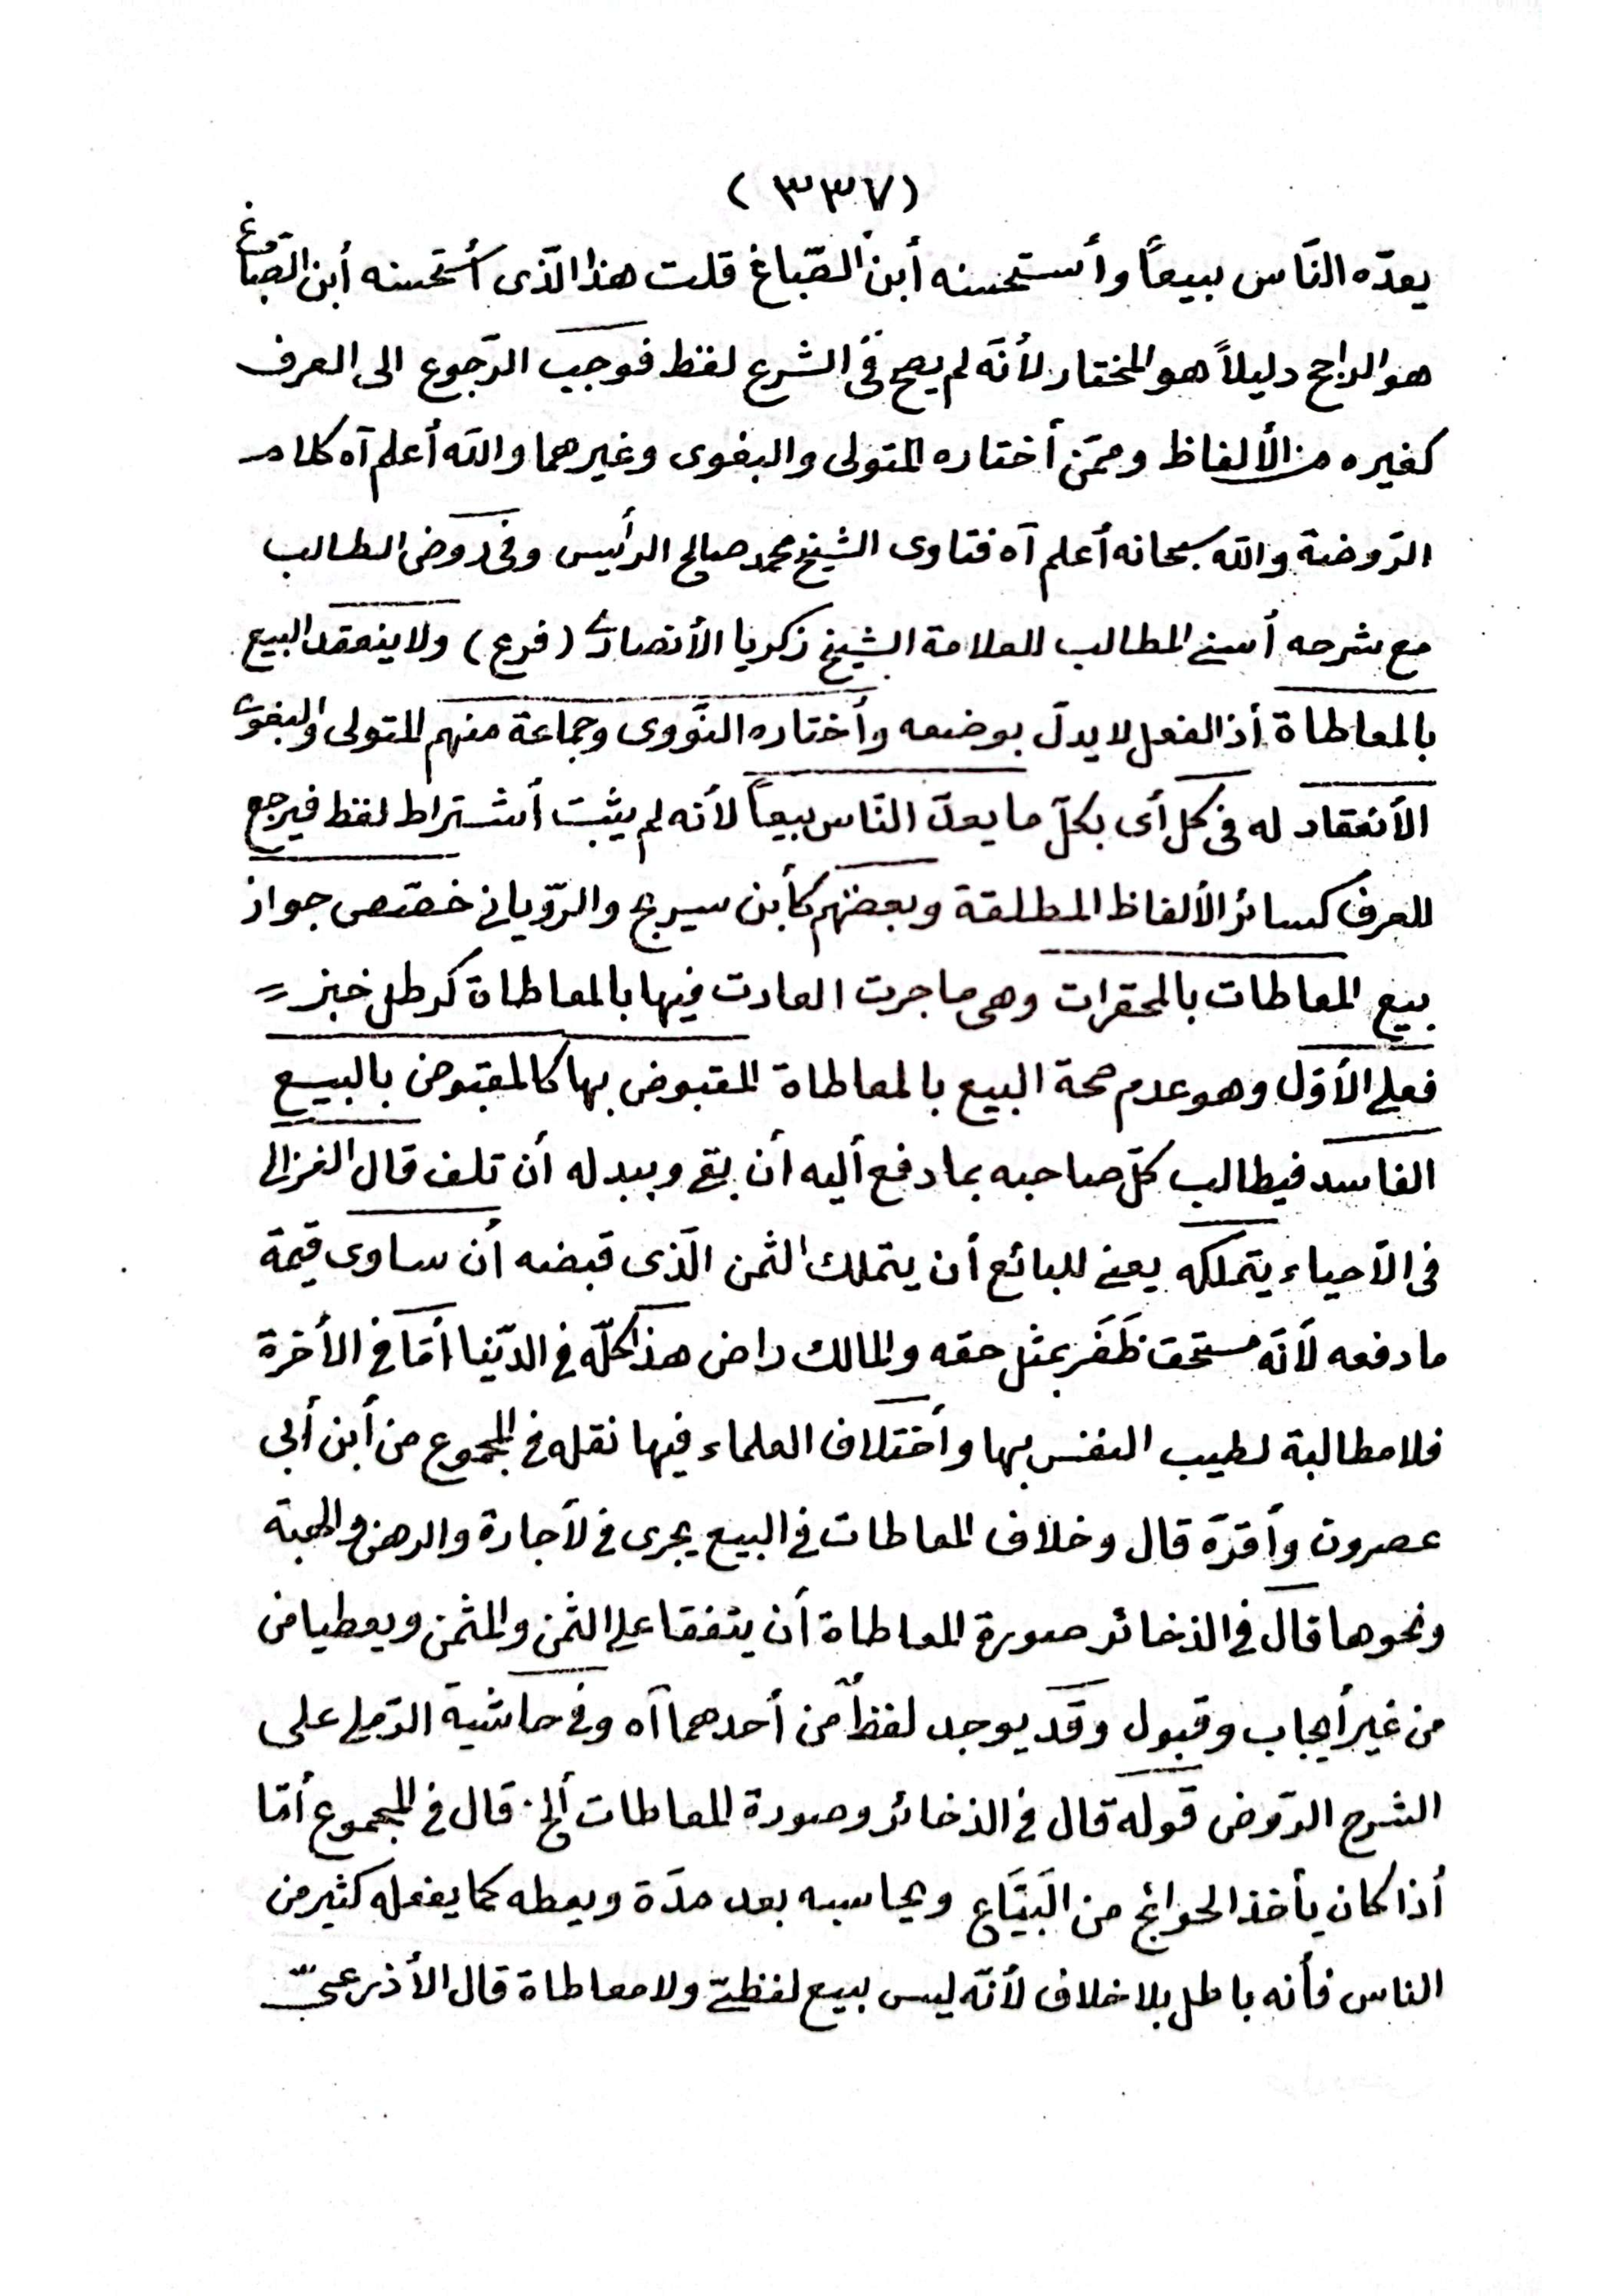 (٣٣٧)
يعدّه النّاس بيعاً وأستحسنه أبن الصّباغ قلت هذا الّذى أستحسنه أبن الصّباغ
هو الراجح دليلاً هو المختار لأنّه لم يصح فى الشرع لفظ فوجب الرّجوع الى العرف
كغيره من الألفاظ وممّن أختاره المتولى والبغوى وغيرهما والله أعلم آه كلام
الرّوضة والله سبحانه أعلم آه فتاوى الشيخ محمد صالح الرأيس وفى روض الطالب
مع شرحه أسنى المطالب للعلامة الشيخ زكريا الأنصارى (فرع) ولا ينعقد البيع
بالمعاطاة أذ الفعل لا يدلّ بوضعه وأختاره النّووى وجماعة منهم المتولى والبغوى
الأنعقاد له فى كل أى بكلّ ما يعدّ النّاس بيعاً لأنه لم يثبت أشتراط لفظ فيرجع
للعرف كسائر الألفاظ المطلقة وبعضهم كأبن سيريج والرّويانى خصّص جواز
بيع المعاطات بالمحقرات وهى ما جرت العادت فيها بالمعاطاة كرطل خبز =
فعلى الأوّل وهو عدم صحة البيع بالمعاطاة المقبوض بها كالمقبوض بالبيع
الفاسد فيطالب كلّ صاحبه بما دفع أليه أن بقى وببدله أن تلف قال الغزالى
فى الأحياء يتملكه يعنى للبائع أن يتملك الثمن الّذى قبضه أن ساوى قيمة
ما دفعه لأنّه مستحق ظَفَر بمثل حقه والمالك راض هذا كلّه فى الدّنيا أمّا فى الأخرة
فلا مطالبة لطيب النفس بها وأختلاف العلماء فيها نقله فى المجموع من أبن أبى
عصرون وأقرّه قال وخلاف المعاطات فى البيع يجرى فى لأجارة والرهن والهبة
ونحوها قال فى الذخائر صورة المعاطاة أن يتفقا على الثمن والمثمن ويعطيا من
من غير أيجاب وقبول وقد يوجد لفظٌ من أحدهما آه وفى حاشية الرّملى على
الشرح الرّوض قوله قال فى الذخائر وصورة المعاطات ألخ. قال فى المجموع أمّا
أذا كان يأخذ الحوائج من البَيَّاع ويحاسبه بعد مدّة ويعطه كما يفعله كثير من
الناس فأنه باطل بلا خلاف لأنّه ليس ببيع لفظىّ ولا معاطاة قال الأذرعىّ